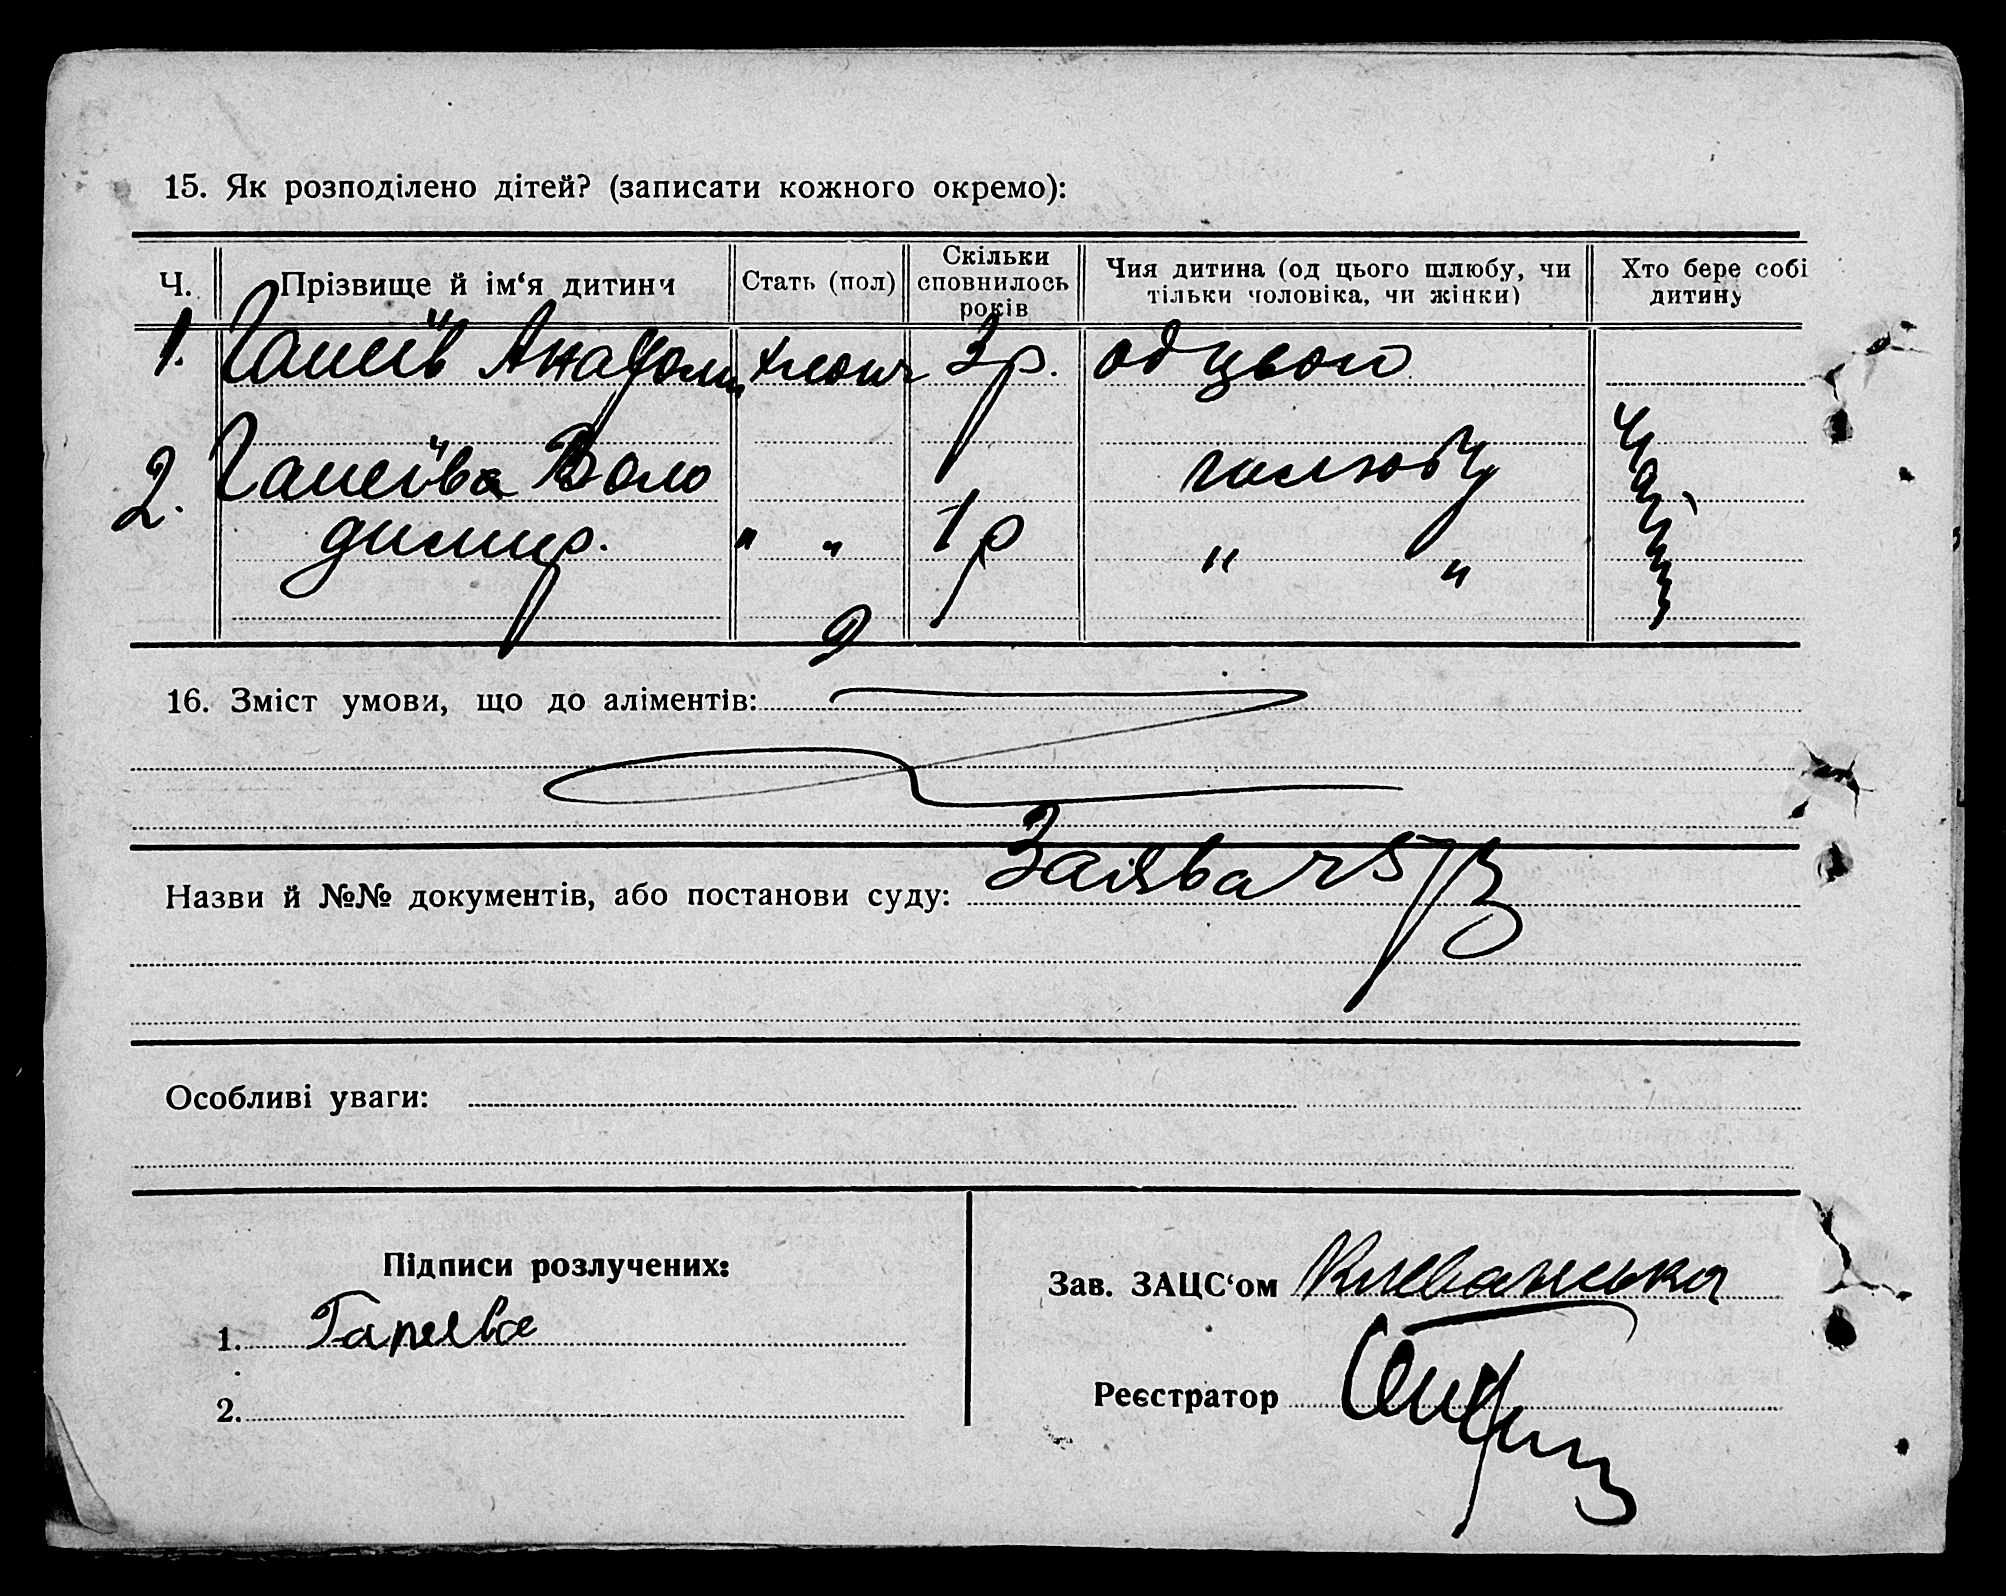 15. Як розподілено дітей? (записати кожного окремо):
Ч. Прізвище й ім‘я дитини Стать (пол) Скільки сповнилось років Чия дитина (од цього шлюбу, чи тільки чоловіка, чи жінки) Хто бере собі дитину
1. Анатолій хлопч 3 р. од цього
2. Воло шлюбу
димир. " " 1 р " "
16. Зміст умови, що до аліментів:
Назви й №№ документів, або постанови суду: Заява
Особливі уваги:
Підписи розлучених:
Зав. ЗАЦС‘ом
1.
Реєстратор
2.